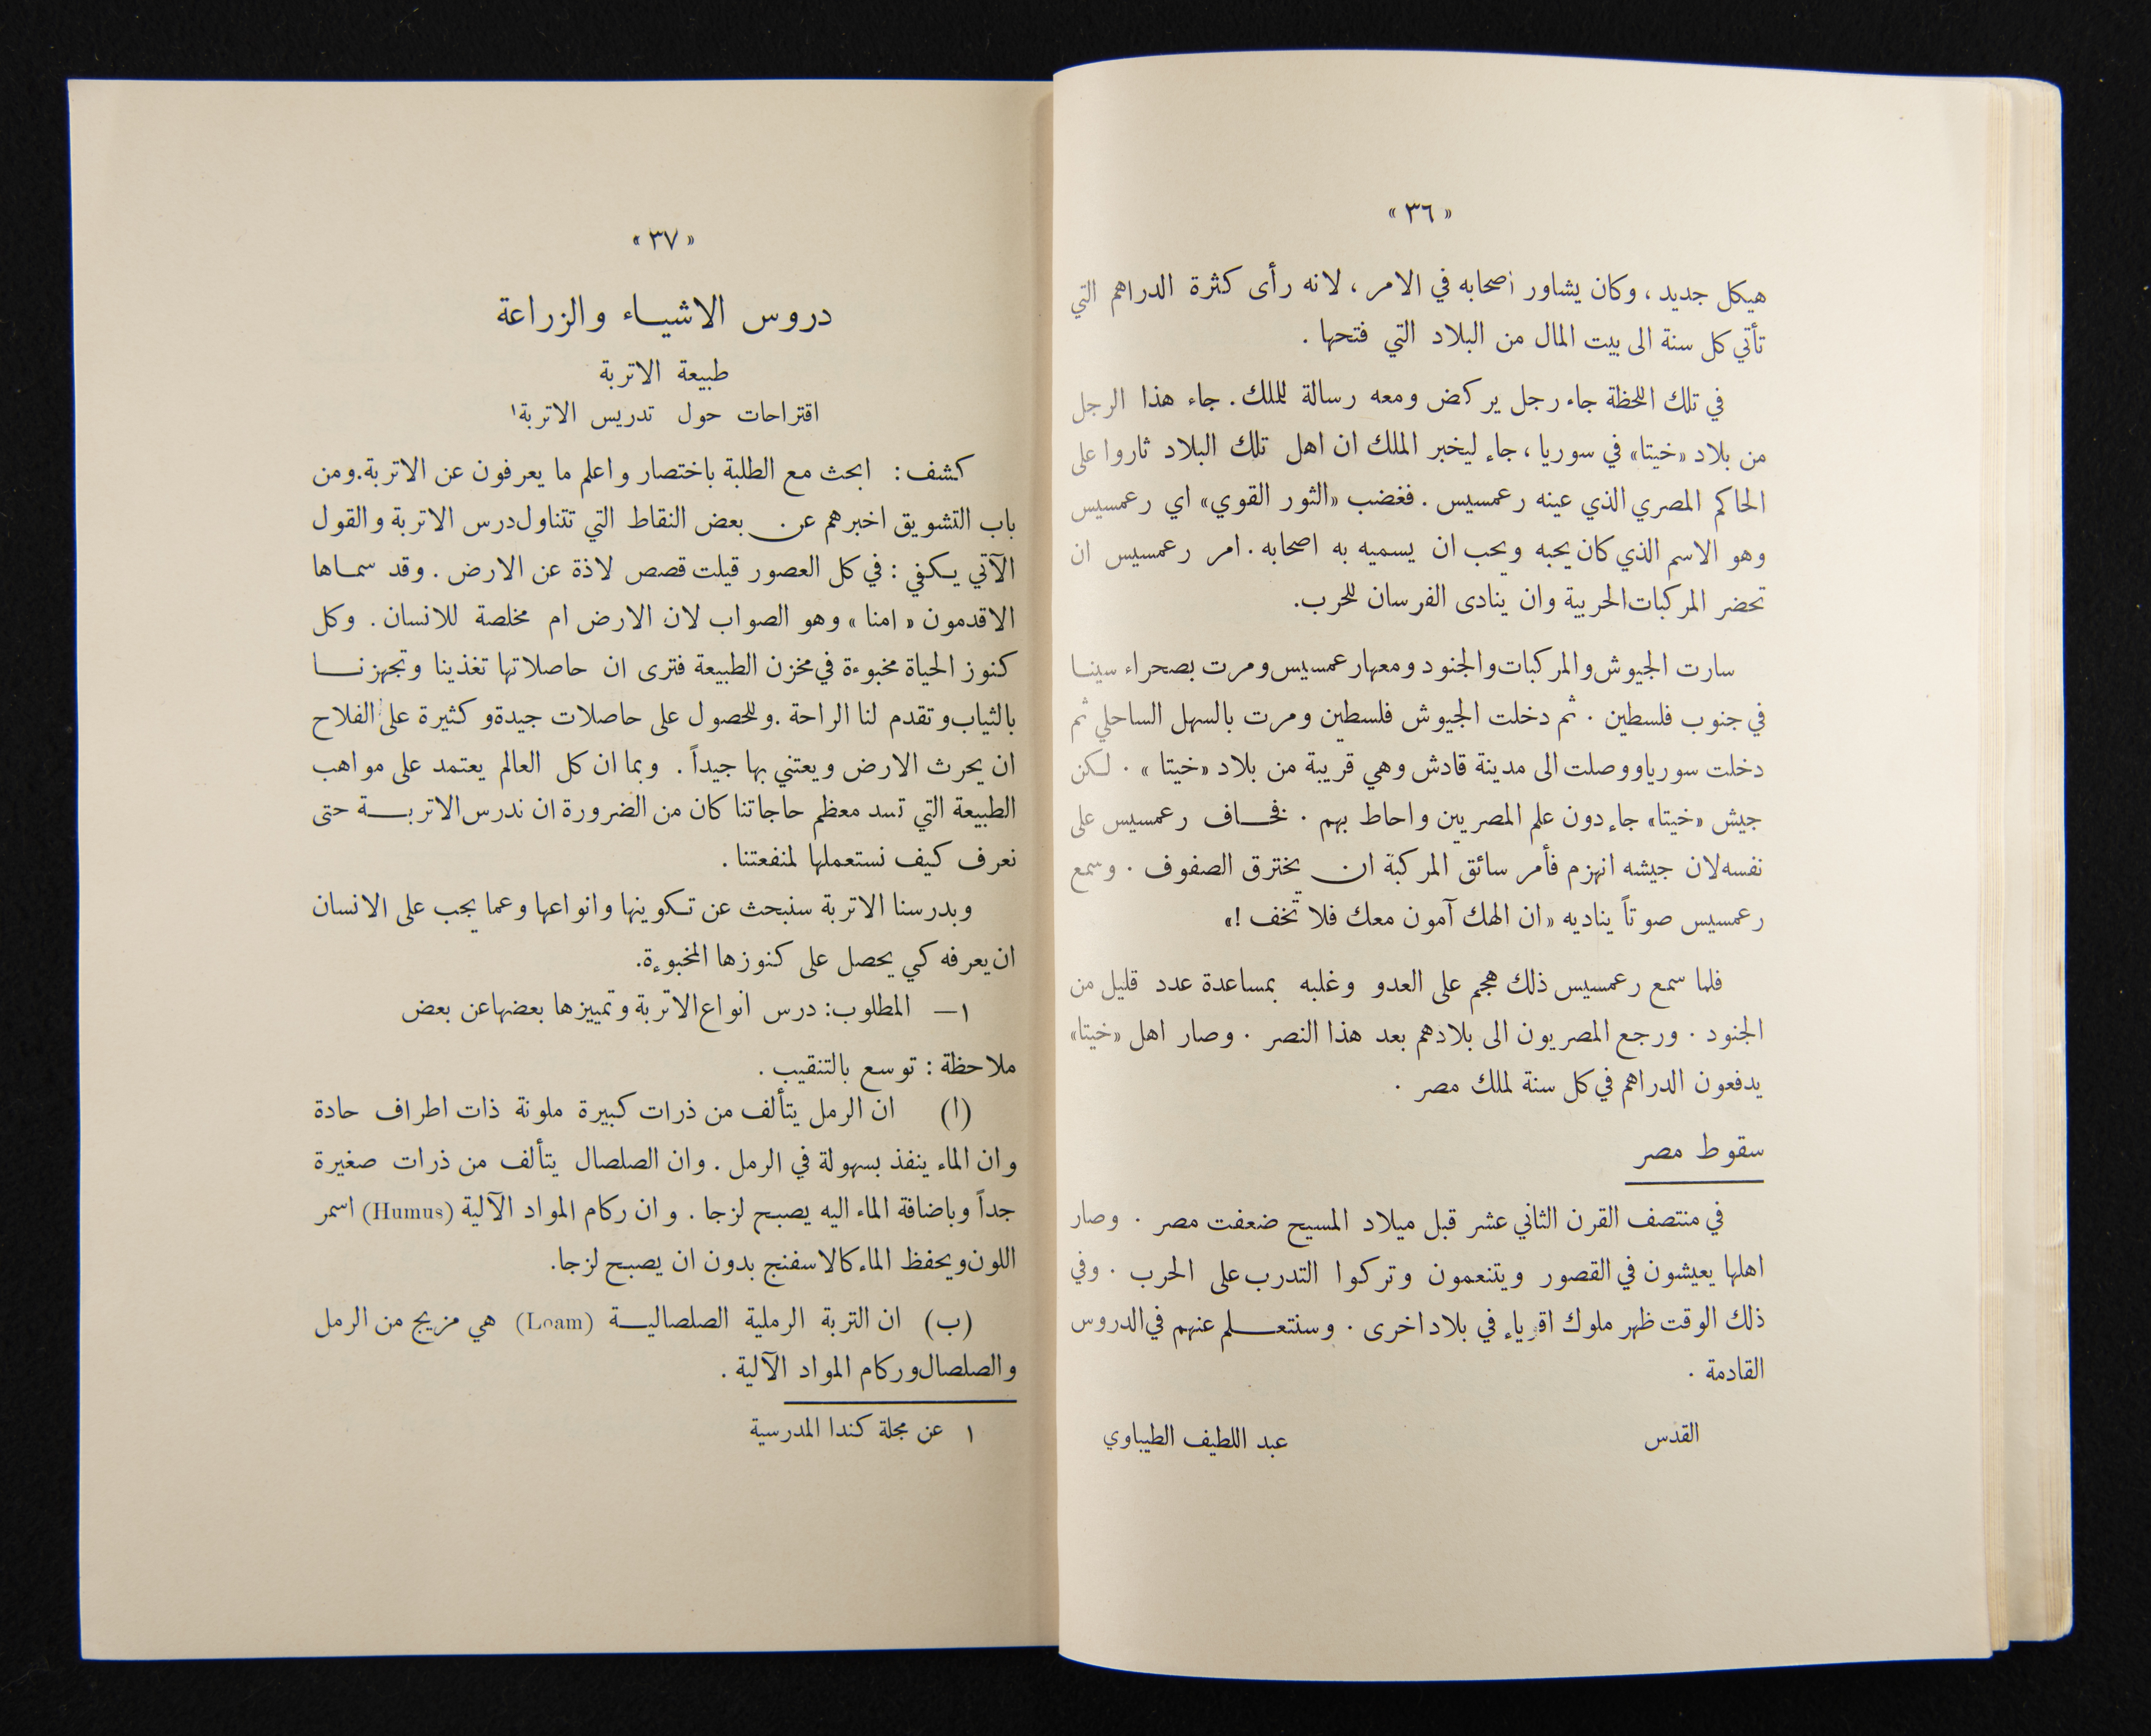 «٣٦»
هيكل جديد، وكان يشاور اصحابه في الامر، لانه رأى كثرة الدراهم التي
تأتي كل سنة الى بيت المال من البلاد التي فتحها.
في تلك اللحظة جاء رجل يركض ومعه رسالة للملك. جاء هذا الرجل
من بلاد «خيتا» في سوريا، جاء ليخبر الملك ان اهل تلك البلاد ثاروا على
الحاكم المصري الذي عينه رعمسيس. فغضب «الثور القوي» اي رعمسيس
وهو الاسم الذي كان يحبه ويحب ان يسميه به اصحابه. امر رعمسيس ان
تحضر المركبات الحربية وان ينادى الفرسان للحرب.
سارت الجيوش والمركبات والجنود ومعها رعمسيس ومرت بصحراء سينا
في جنوب فلسطين. ثم دخلت الجيوش فلسطين ومرت بالسهل الساحلي ثم
دخلت سوريا ووصلت الى مدينة قادش وهي قريبة من بلاد «خيتا». لكن
جيش «خيتا» جاء دون علم المصريين واحاط بهم. فخاف رعمسيس على
نفسه لان جيشه انهزم فأمر سائق المركبة ان يخترق الصفوف. وسمع
رعمسيس صوتاً يناديه «ان الهك آمون معك فلا تخف!»
فلما سمع رعمسيس ذلك هجم على العدو وغلبه بمساعدة عدد قليل من
الجنود. ورجع المصريون الى بلادهم بعد هذا النصر. وصار اهل «خيتا»
يدفعون الدراهم في كل سنة لملك مصر.
سقوط مصر
في منتصف القرن الثاني عشر قبل ميلاد المسيح ضعفت مصر. وصار
اهلها يعيشون في القصور ويتنعمون وتركوا التدرب على الحرب. وفي
ذلك الوقت ظهر ملوك اقوياء في بلاد اخرى. وسنتعلم عنهم في الدروس
القادمة.
القدس عبد اللطيف الطيباوي
«٣٧»
دروس الاشياء والزراعة
طبيعة الاتربة
اقتراحات حول تدريس الاتربة١
كشف: ابحث مع الطلبة باختصار واعلم ما يعرفون عن الاتربة. ومن
باب التشويق اخبرهم عن بعض النقاط التي تتناول درس الاتربة والقول
الآتي يكفي: في كل العصور قيلت قصص لاذة عن الارض. وقد سماها
الاقدمون «امنا» وهو الصواب لان الارض ام مخلصة للانسان. وكل
كنوز الحياة مخبوءة في مخزن الطبيعة فترى ان حاصلاتها تغذينا وتجهزنا
بالثياب وتقدم لنا الراحة. وللحصول على حاصلات جيدة وكثيرة على الفلاح
ان يحرث الارض ويعتني بها جيداً. وبما ان كل العالم يعتمد على مواهب
الطبيعة التي تسد معظم حاجاتنا كان من الضرورة ان ندرس الاتربة حتى
نعرف كيف نستعملها لمنفعتنا.
وبدرسنا الاتربة سنبحث عن تكوينها وانواعها وعما يجب على الانسان
ان يعرفه كي يحصل على كنوزها المخبوءة.
١— المطلوب: درس انواع الاتربة وتمييزها بعضها عن بعض
ملاحظة: توسع بالتنقيب.
(ا) ان الرمل يتألف من ذرات كبيرة ملونة ذات اطراف حادة
وان الماء ينفذ بسهولة في الرمل. وان الصلصال يتألف من ذرات صغيرة
جداً وباضافة الماء اليه يصبح لزجا. وان ركام المواد الآلية (Humus) اسمر
اللون ويحفظ الماء كالاسفنج بدون ان يصبح لزجا.
(ب) ان التربة الرملية الصلصالية (Loam) هي مزيج من الرمل
والصلصال وركام المواد الآلية.
١ عن مجلة كندا المدرسية